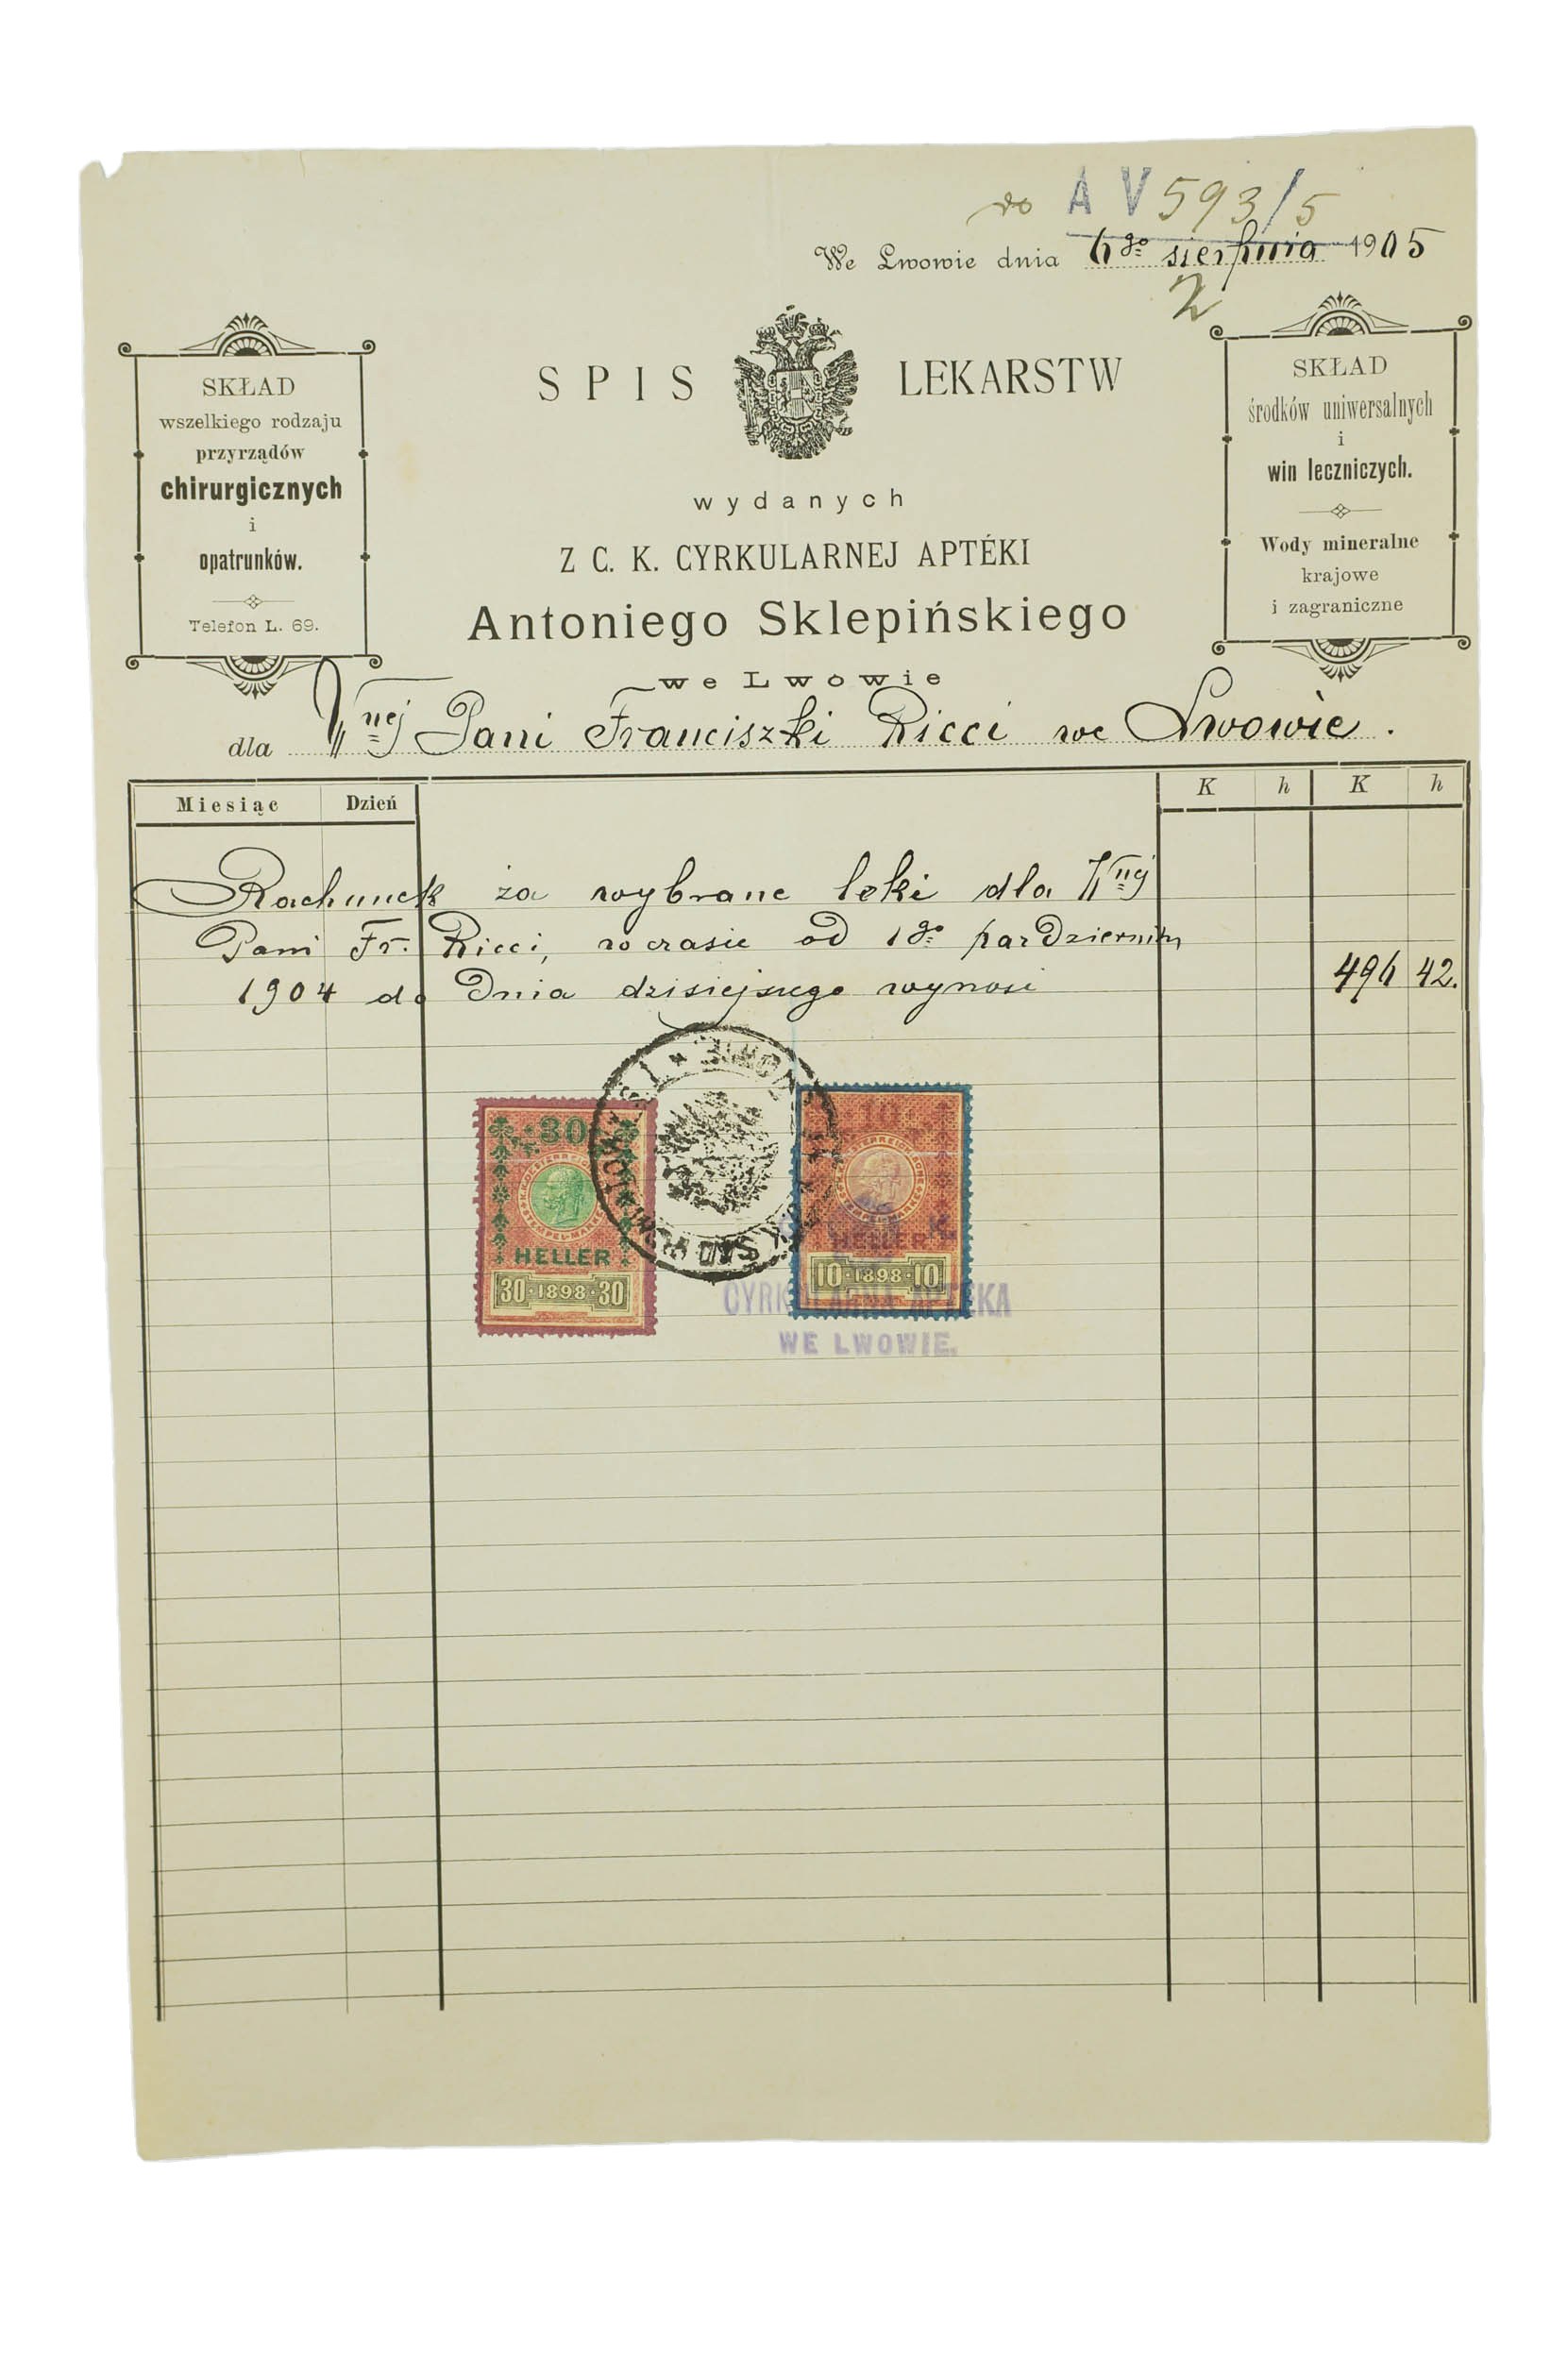 do A V 593/5
We Lwowie dnia 6go sierpnia 1905
2
SKŁAD
wszelkiego rodzaju
przyrządów
chirurgicznych
i
opatrunków.
Telefon L. 69.
SPIS LEKARSTW
wydanych
Z C. K. CYRKULARNEJ APTÉKI
Antoniego Sklepińskiego
we Lwowie
SKŁAD
środków uniwersalnych
i
win leczniczych.
Wody mineralne
krajowe
i zagraniczne
dla Wnej Pani Franciszki Ricci we Lwowie.
Miesiąc Dzień K h K h
Rachunek za wybrane leki dla Wnej
Pani Fr. Ricci, w czasie od 1go października
1904 do dnia dzisiejszego wynosi 496 42.
30
HELLER
30·1898·30
10
HELLER
10·1898·10
CYRKULARNA APTEKA
WE LWOWIE.